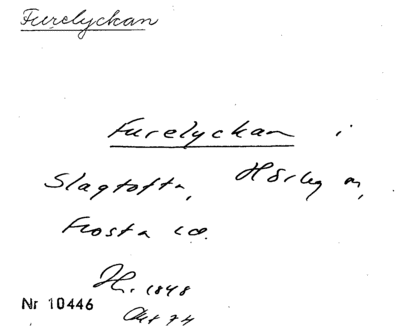 Furelyckan
Furelyckan i
Slagtofta, Hörby sn,
Frosta hd.
H. 1848
Akt 74
Nr 10446